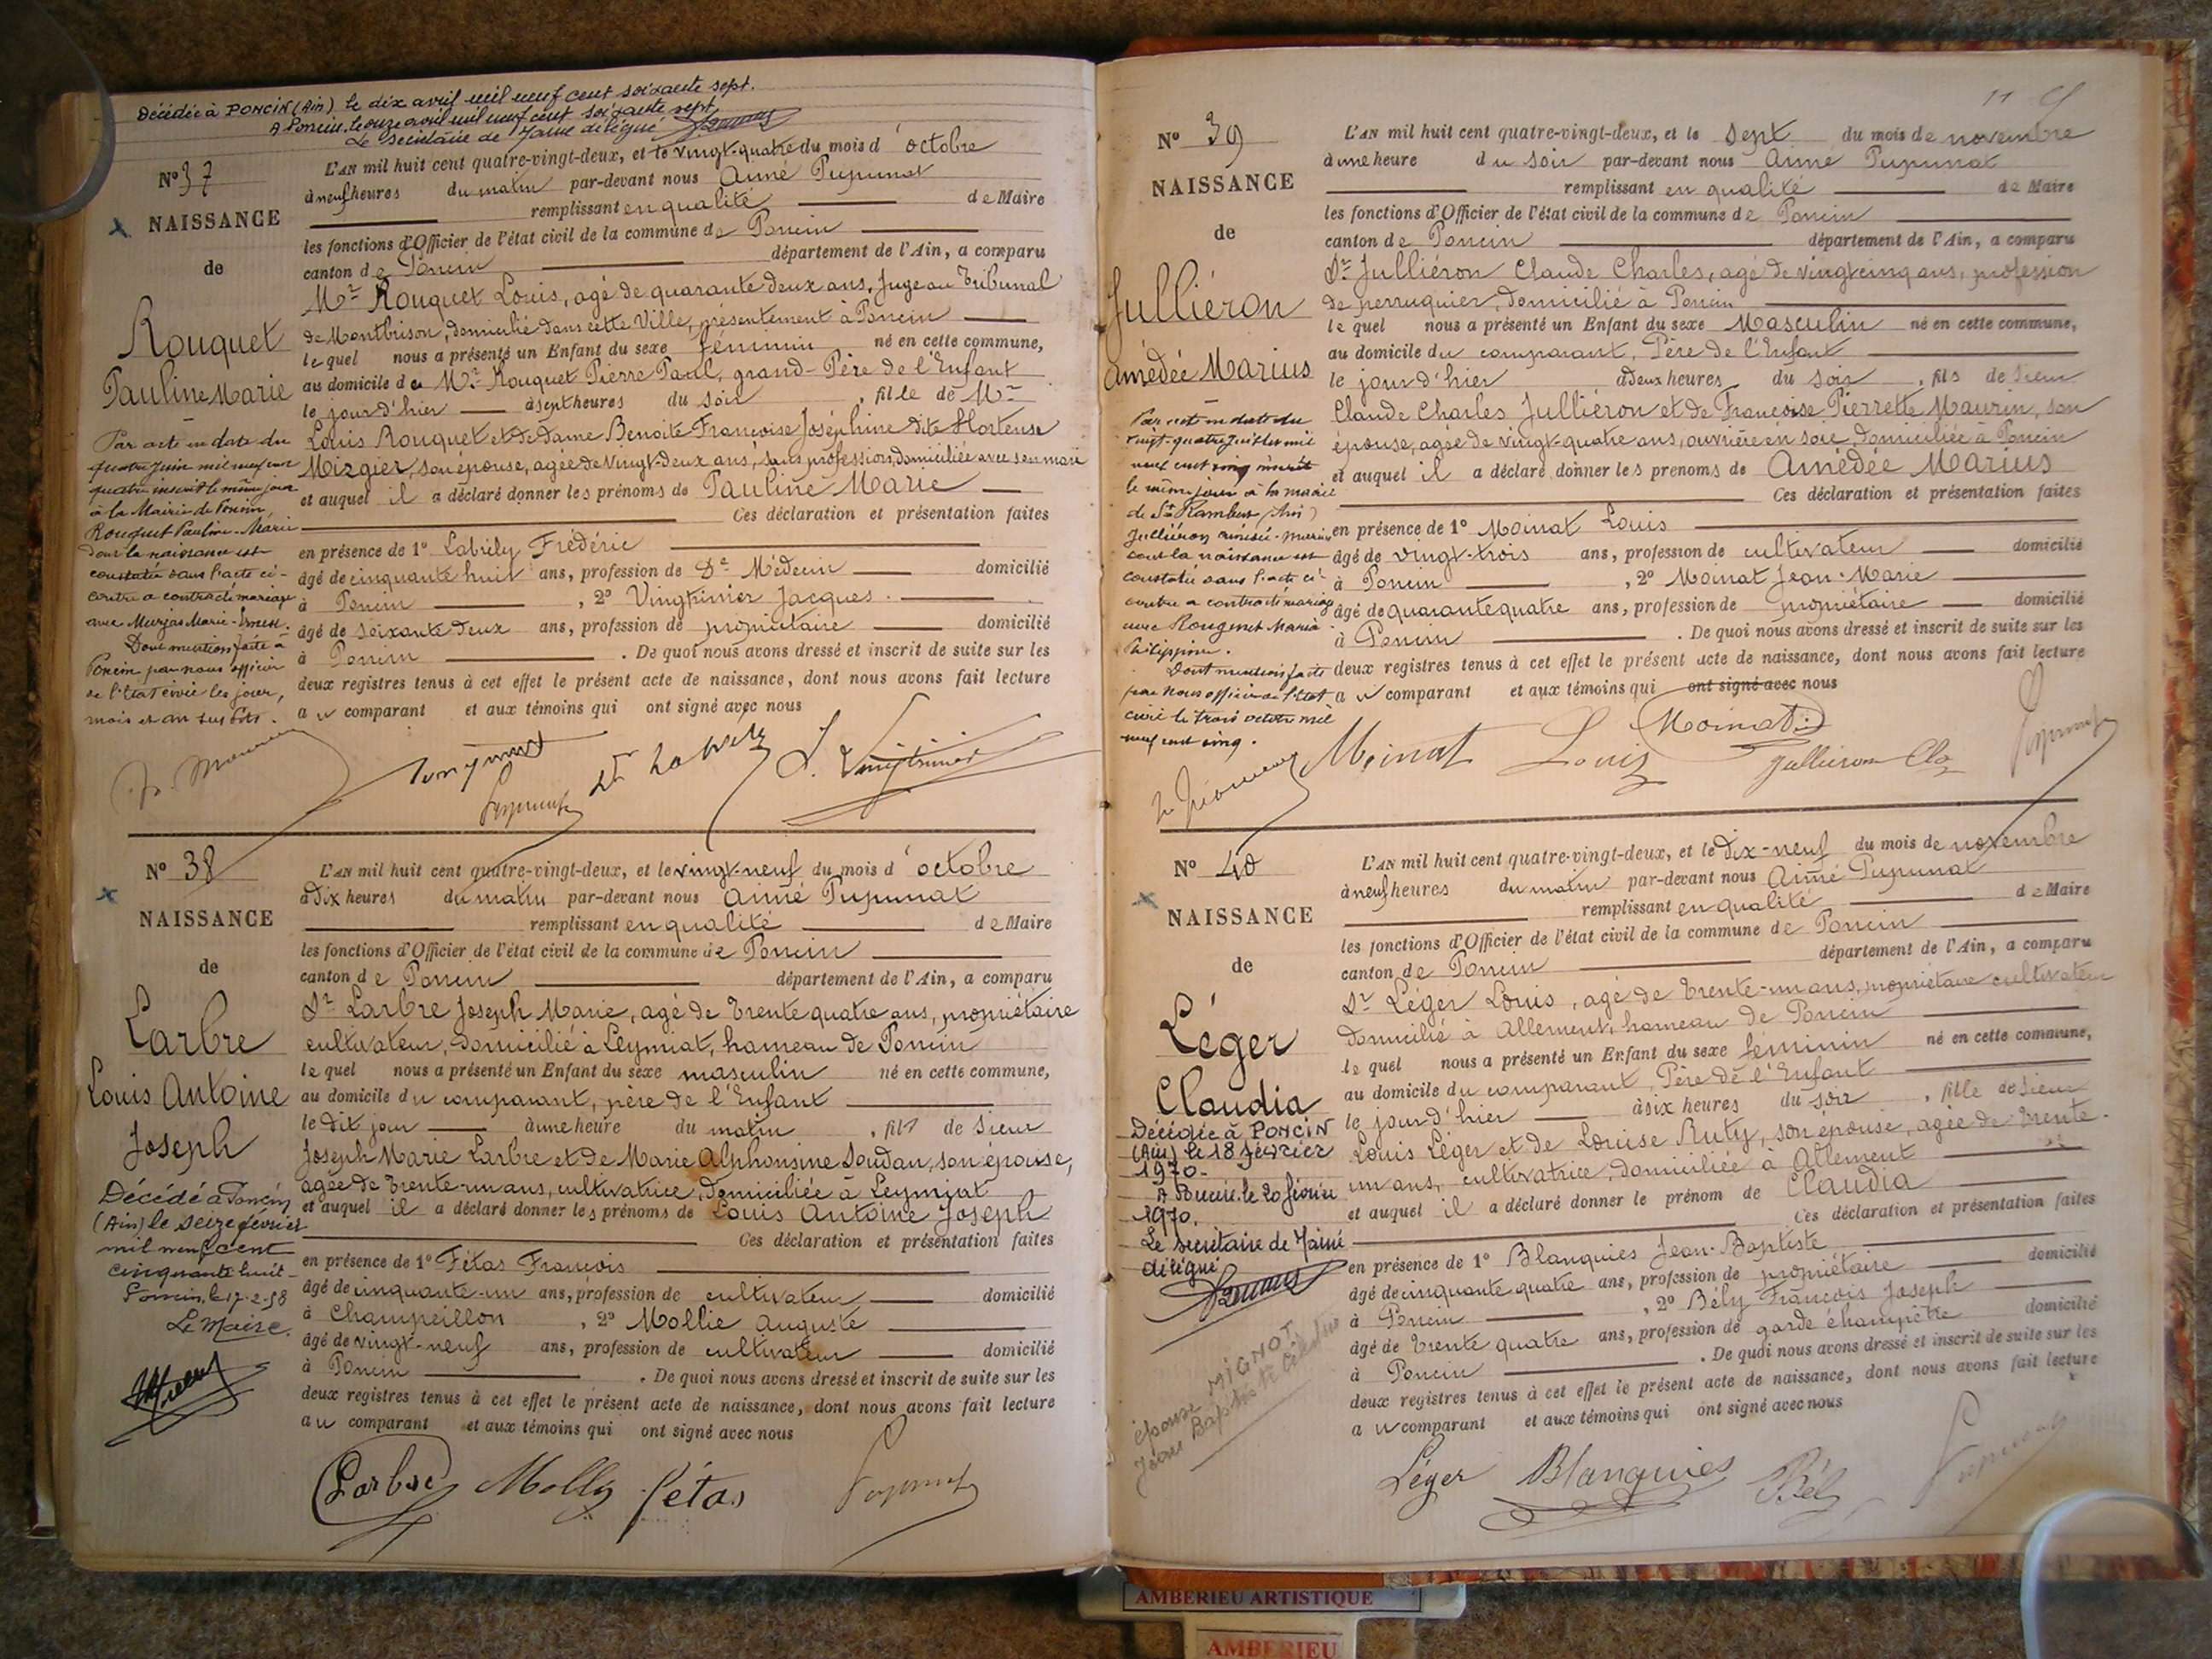 Décédée à PONCIN (Ain) le dix avril mil neuf cent soixante sept.
A Poncin, le onze avril mil neuf cent soixante sept
Le Secrétaire de Mairie délégué
N° 37
NAISSANCE
de
Rouquet
Pauline Marie
Par acte en date du
quatre juin mil neuf cent
quatre inscrit le même jour
à la Mairie de Poncin,
Rouquet Pauline-Marie
dont la naissance est
constatée dans l'acte ci-
contre a contracté mariage
avec Marie-Ernest.
Dont mention faite à
Poncin par nous officier
de l'Etat civil les jour,
mois et an sus dits.
L'AN mil huit cent quatre-vingt-deux, et le vingt-quatre du mois d'octobre
à neuf heures du matin par-devant nous Aimé Pupunat
remplissant en qualité de Maire
les fonctions d'Officier de l'état civil de la commune de Poncin
canton de Poncin département de l'Ain, a comparu
Mr Rouquet Louis, agé de quarante deux ans, Juge au Tribunal
de Montbrison, domicilié dans cette Ville, présentement à Poncin
le quel nous a présenté un Enfant du sexe féminin né en cette commune,
au domicile de Mr Rouquet Pierre Paul, grand-Père de l'Enfant
le jour d'hier à sept heures du soir, fille de Mr
Louis Rouquet et de Dame Benoite Françoise Joséphine dite Hortense
Mizgier, son épouse, agée de vingt-deux ans, sans profession, domiciliée avec son mari
et auquel il a déclaré donner les prénoms de Pauline Marie
Ces déclaration et présentation faites
en présence de 1° Labrély Frédéric
âgé de cinquante huit ans, profession de Dr Médecin domicilié
à Poncin, 2° Vingtrinier Jacques.
âgé de soixante deux ans, profession de propriétaire domicilié
à Poncin. De quoi nous avons dressé et inscrit de suite sur les
deux registres tenus à cet effet le présent acte de naissance, dont nous avons fait lecture
au comparant et aux témoins qui ont signé avec nous
Rouquet Pupunat Dr Labrély J. Vingtrinier
N° 38
NAISSANCE
de
Larbre
Louis Antoine
Joseph
Décédé à Poncin
(Ain) le seize février
mil neuf cent
cinquante huit
Poncin, le 17-2-58
Le Maire.
L'AN mil huit cent quatre-vingt-deux, et le vingt-neuf du mois d'octobre
à dix heures du matin par-devant nous Aimé Pupunat
remplissant en qualité de Maire
les fonctions d'Officier de l'état civil de la commune de Poncin
canton de Poncin département de l'Ain, a comparu
Sr Larbre Joseph Marie, agé de trente quatre ans, propriétaire
cultivateur, domicilié à Leymiat, hameau de Poncin
le quel nous a présenté un Enfant du sexe masculin né en cette commune,
au domicile du comparant, père de l'Enfant
le dit jour à une heure du matin, fils de Sieur
Joseph Marie Larbre et de Marie Alphonsine Soudan, son épouse,
agée de trente-un ans, cultivatrice, domiciliée à Leymiat
et auquel il a déclaré donner les prénoms de Louis Antoine Joseph
Ces déclaration et présentation faites
en présence de 1° Fétas François
âgé de cinquante-un ans, profession de cultivateur domicilié
à Champeillon, 2° Mollie Auguste
âgé de vingt-neuf ans, profession de cultivateur domicilié
à Poncin. De quoi nous avons dressé et inscrit de suite sur les
deux registres tenus à cet effet le présent acte de naissance, dont nous avons fait lecture
au comparant et aux témoins qui ont signé avec nous
Larbre Molly fétas Pupunat
N° 39
NAISSANCE
de
Julliéron
Amédée Marius
Par acte en date du
vingt-quatre juillet mil
neuf cent cinq inscrit
le même jour à la mairie
de St Rambert (Ain)
Julliéron Amédée-Marius
dont la naissance est
constatée dans l'acte ci-
contre a contracté mariage
avec Rougemet Maria
Philippine.
Dont mention faite
par nous officier de l'Etat
civil le trois octobre mil
neuf cent cinq.
L'AN mil huit cent quatre-vingt-deux, et le sept du mois de novembre
à une heure du soir par-devant nous Aimé Pupunat
remplissant en qualité de Maire
les fonctions d'Officier de l'état civil de la commune de Poncin
canton de Poncin département de l'Ain, a comparu
Sr Julliéron Claude Charles, agé de vingt cinq ans, profession
de perruquier, domicilié à Poncin
le quel nous a présenté un Enfant du sexe Masculin né en cette commune,
au domicile du comparant, Père de l'Enfant
le jour d'hier à deux heures du soir, fils de Sieur
Claude Charles Julliéron et de Françoise Pierrette Maurin, son
épouse, agée de vingt-quatre ans, ouvrière en soie, domiciliée à Poncin
et auquel il a déclaré donner les prenoms de Amédée Marius
Ces déclaration et présentation faites
en présence de 1° Moinat Louis
âgé de vingt-trois ans, profession de cultivateur domicilié
à Poncin, 2° Moinat Jean-Marie
âgé de quarante quatre ans, profession de propriétaire domicilié
à Poncin. De quoi nous avons dressé et inscrit de suite sur les
deux registres tenus à cet effet le présent acte de naissance, dont nous avons fait lecture
au comparant et aux témoins qui ont signé avec nous
Moinat Louis Moinat Jullieron Cle Pupunat
N° 40
NAISSANCE
de
Léger
Claudia
Décédée à PONCIN
(Ain) le 18 février
1970-
A Poncin, le 20 février
1970.
Le secrétaire de Mairie
délégué
épouse MIGNOT
Jean Baptiste
L'AN mil huit cent quatre-vingt-deux, et le dix-neuf du mois de novembre
à neuf heures du matin par-devant nous Aimé Pupunat
remplissant en qualité de Maire
les fonctions d'Officier de l'état civil de la commune de Poncin
canton de Poncin département de l'Ain, a comparu
Sr Léger Louis, agé de trente-un ans, propriétaire cultivateur
domicilié à Allement, hameau de Poncin
le quel nous a présenté un Enfant du sexe féminin né en cette commune,
au domicile du comparant, Père de l'Enfant
le jour d'hier à six heures du soir, fille de Sieur
Louis Léger et de Louise Ruty, son épouse, agée de trente-
un ans, cultivatrice, domiciliée à Allement
et auquel il a déclaré donner le prénom de Claudia
Ces déclaration et présentation faites
en présence de 1° Blanquies Jean-Baptiste
âgé de cinquante quatre ans, profession de propriétaire domicilié
à Poncin, 2° Bély François Joseph
âgé de trente quatre ans, profession de garde champêtre domicilié
à Poncin. De quoi nous avons dressé et inscrit de suite sur les
deux registres tenus à cet effet le présent acte de naissance, dont nous avons fait lecture
au comparant et aux témoins qui ont signé avec nous
Léger Blanquies Bély Pupunat
AMBERIEU ARTISTIQUE
AMBERIEU